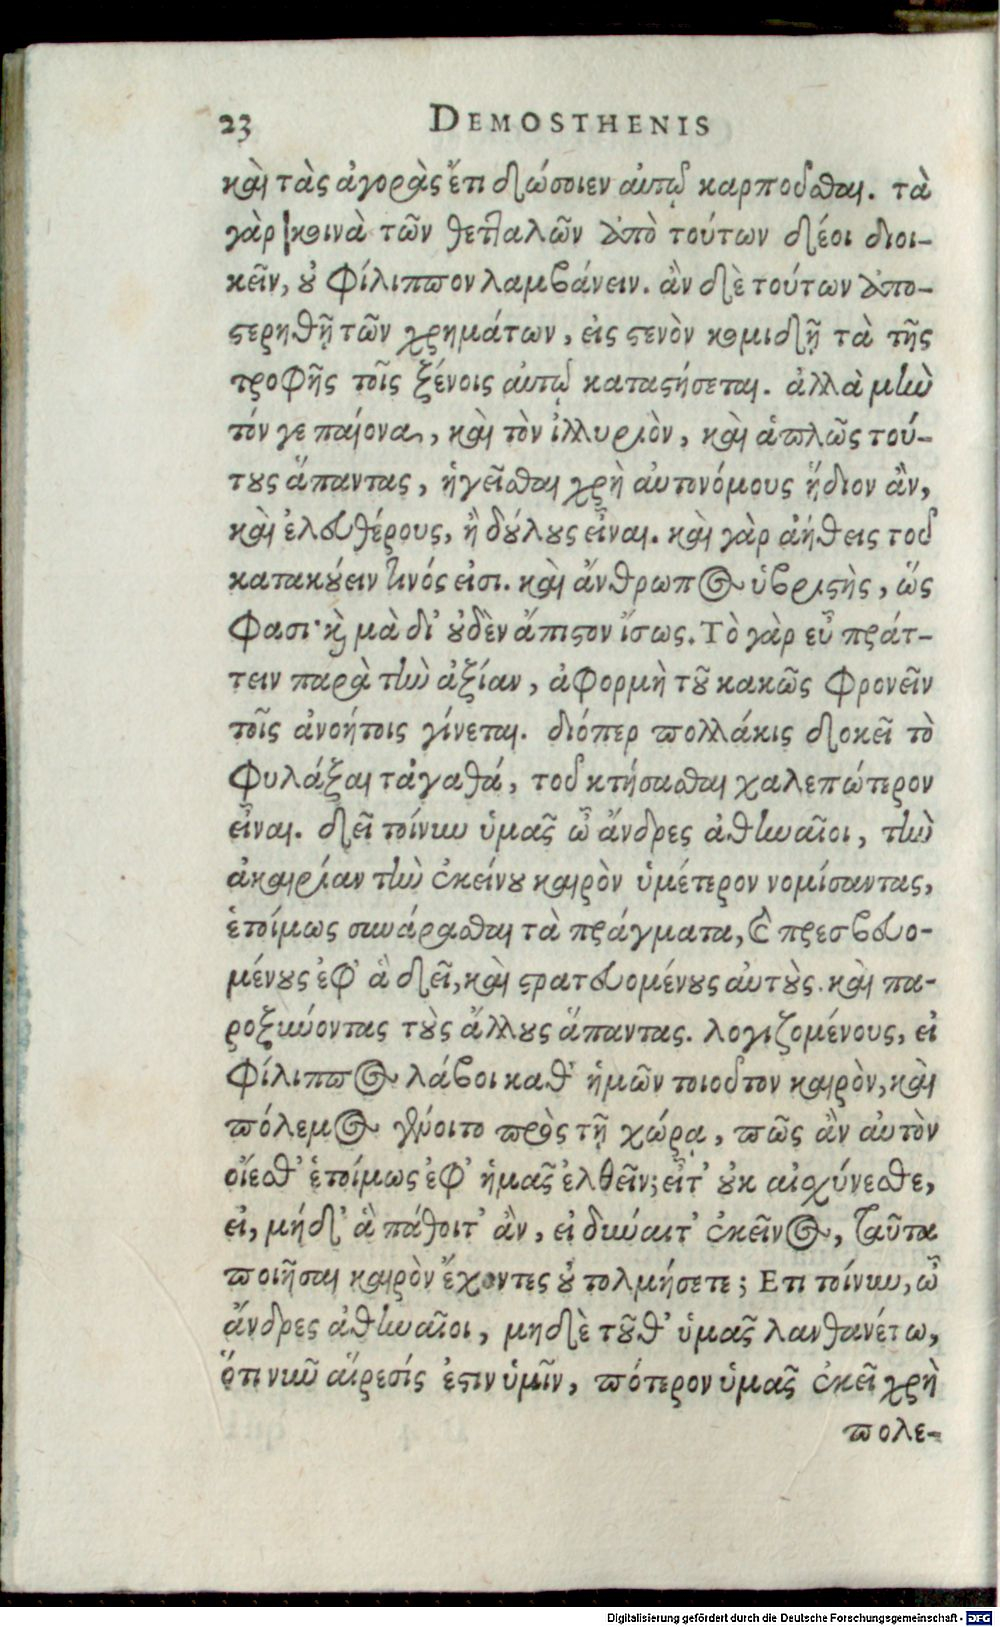 23 DEMOSTHENIS
καὶ τὰς ἀγορὰς ἔτι δώσοιεν αὐτῷ καρποῦσθαι. τὰ
γὰρ κοινὰ τῶν θετταλῶν ἀπὸ τούτων δέοι διοι-
κεῖν, οὐ Φίλιππον λαμβάνειν. ἂν δὲ τούτων ἀπο-
στερηθῇ τῶν χρημάτων, εἰς στενὸν κομιδῇ τὰ τῆς
τροφῆς τοῖς ξένοις αὐτῷ καταστήσεται. ἀλλὰ μὴν
τόν γε παίονα, καὶ τὸν ἰλλυριὸν, καὶ ἁπλῶς τού-
τους ἅπαντας, ἡγεῖσθαι χρὴ αὐτονόμους ἥδιον ἂν,
καὶ ἐλευθέρους, ἢ δούλους εἶναι. καὶ γὰρ ἀήθεις τοῦ
κατακούειν τινός εἰσι. καὶ ἄνθρωπος ὑβριστὴς, ὥς
φασι· καὶ μὰ δί' οὐδὲν ἄπιστον ἴσως. Τὸ γὰρ εὖ πράτ-
τειν παρὰ τὴν ἀξίαν, ἀφορμὴ τοῦ κακῶς φρονεῖν
τοῖς ἀνοήτοις γίνεται. διόπερ πολλάκις δοκεῖ τὸ
φυλάξαι τἀγαθά, τοῦ κτήσασθαι χαλεπώτερον
εἶναι. δεῖ τοίνυν ὑμᾶς ὦ ἄνδρες ἀθηναῖοι, τὴν
ἀκαιρίαν τὴν ἐκείνου καιρὸν ὑμέτερον νομίσαντας,
ἑτοίμως συνάρασθαι τὰ πράγματα, καὶ πρεσβευο-
μένους ἐφ' ἃ δεῖ, καὶ στρατευομένους αὐτοὺς. καὶ πα-
ροξύνοντας τοὺς ἄλλους ἅπαντας. λογιζομένους, εἰ
Φίλιππος λάβοι καθ' ἡμῶν τοιοῦτον καιρὸν, καὶ
πόλεμος γένοιτο πρὸς τῇ χώρᾳ, πῶς ἂν αὐτὸν
οἴεσθ' ἑτοίμως ἐφ' ἡμᾶς ἐλθεῖν; εἶτ' οὐκ αἰσχύνεσθε,
εἰ, μήδ' ἃ πάθοιτ' ἂν, εἰ δύναιτ' ἐκεῖνος, ταῦτα
ποιῆσαι καιρὸν ἔχοντες οὐ τολμήσετε; Ετι τοίνυν, ὦ
ἄνδρες ἀθηναῖοι, μηδὲ τοῦθ' ὑμᾶς λανθανέτω,
ὅτι νῦν αἵρεσίς ἐστιν ὑμῖν, πότερον ὑμᾶς ἐκεῖ χρὴ
πολε-
Digitalisierung gefördert durch die Deutsche Forschungsgemeinschaft - DFG